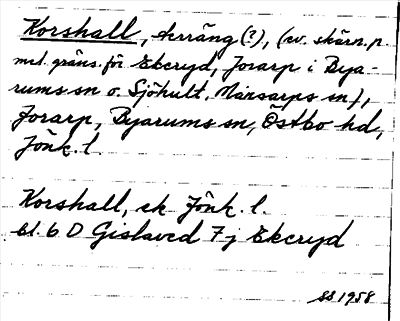 Korshall, terräng (?), (ev. skärn.p.
mel. gräns. för Ekeryd, Forarp i Bya-
rums sn o. Sjöhult, Nässarps sn),
Forarp, Byarums sn, Östbo hd,
Jönk. l.
Korshall, ek Jönk. l.
bl. 6 D Gislaved 7 j Ekeryd
SS 1958